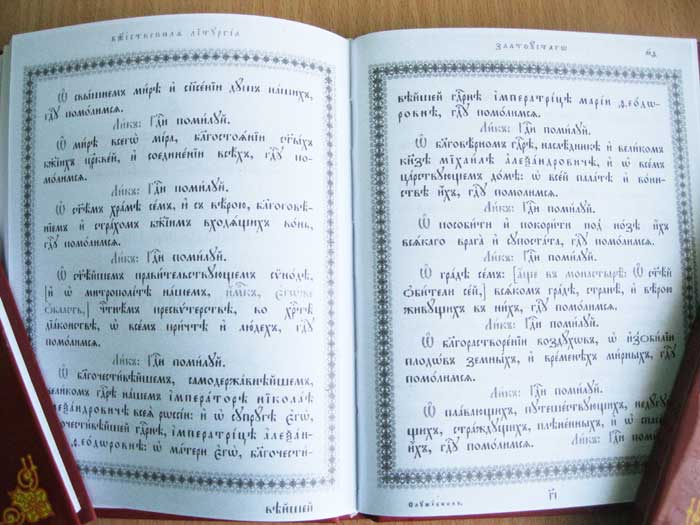 Бж҃ественная літургі́а
Ѡ҆ свы́шнемъ ми́рѣ и҆ спⷭ҇е́нїи дꙋ́шъ на́шихъ,
гдⷭ҇ꙋ помо́лимсѧ.
Ли́къ: Гдⷭ҇и поми́лꙋй.
Ѡ҆ ми́рѣ всегѡ̀ мі́ра, благостоѧ́нїи ст҃ы́хъ
бж҃їихъ цр҃кве́й, и҆ соедине́нїи всѣ́хъ, гдⷭ҇ꙋ по-
мо́лимсѧ.
Ли́къ: Гдⷭ҇и поми́лꙋй.
Ѡ҆ ст҃ѣ́мъ хра́мѣ се́мъ, и҆ съ вѣ́рою, благоговѣ́-
нїемъ и҆ стра́хомъ бж҃їимъ входѧ́щихъ во́нь,
гдⷭ҇ꙋ помо́лимсѧ.
Ли́къ: Гдⷭ҇и поми́лꙋй.
Ѡ҆ ст҃ѣ́йшемъ прави́тельствꙋющемъ сѷно́дѣ,
[и҆ ѡ҆ митрополі́тѣ на́шемъ, и҆́м҃къ, є҆гѡ́же
ѻ҆́бласть,] чⷭ҇тнѣ́мъ пресвѵ́терствѣ, во хрⷭ҇тѣ̀
дїа́конствѣ, ѡ҆ все́мъ при́чтѣ и҆ лю́дехъ, гдⷭ҇ꙋ
помо́лимсѧ.
Ли́къ: Гдⷭ҇и поми́лꙋй.
Ѡ҆ благочести́вѣйшемъ, самодержа́внѣйшемъ,
вели́комъ гдⷭ҇рѣ на́шемъ і҆мпера́торѣ нїкола́ѣ
а҆леѯа́ндровичѣ всеѧ̀ рѡссі́и: и҆ ѡ҆ сꙋпрꙋ́гѣ є҆гѡ̀,
благочести́вѣйшей гдⷭ҇рнѣ, і҆мператрі́цѣ а҆леѯа́н-
дрѣ ѳео́дѡровнѣ: ѡ҆ ма́тери є҆гѡ̀, благочести́-
вѣйшей
Златоꙋстагѡ
м҃д.
вѣйшей гдⷭ҇рнѣ і҆мператрі́цѣ марі́и ѳео́дѡ-
ровнѣ, гдⷭ҇ꙋ помо́лимсѧ.
Ли́къ: Гдⷭ҇и поми́лꙋй.
Ѡ҆ благовѣ́рномъ гдⷭ҇рѣ, наслѣ́дникѣ и҆ вели́комъ
кнѧ҃зѣ мїхаи́лѣ а҆леѯа́ндровичѣ, и҆ ѡ҆ все́мъ
ца́рствꙋющемъ до́мѣ: ѡ҆ все́й пала́тѣ и҆ во́ин-
ствѣ и҆́хъ, гдⷭ҇ꙋ помо́лимсѧ.
Ли́къ: Гдⷭ҇и поми́лꙋй.
Ѡ҆ пособи́ти и҆ покори́ти под̾ но́зѣ и҆́хъ
всѧ́каго врага̀ и҆ сꙋпоста́та, гдⷭ҇ꙋ помо́лимсѧ.
Ли́къ: Гдⷭ҇и поми́лꙋй.
Ѡ҆ гра́дѣ се́мъ: [а҆́ще въ монастырѣ̀: Ѡ҆ ст҃ѣ́й
ѻ҆би́тели се́й,] всѧ́комъ гра́дѣ, странѣ̀, и҆ вѣ́рою
живꙋ́щихъ въ ни́хъ, гдⷭ҇ꙋ помо́лимсѧ.
Ли́къ: Гдⷭ҇и поми́лꙋй.
Ѡ҆ благорастворе́нїи воздꙋ́хѡвъ, ѡ҆ и҆з̾ѻби́лїи
плодѡ́въ земны́хъ, и҆ време́нѣхъ ми́рныхъ, гдⷭ҇ꙋ
помо́лимсѧ.
Ли́къ: Гдⷭ҇и поми́лꙋй.
Ѡ҆ пла́вающихъ, пꙋтеше́ствꙋющихъ, недꙋ́гꙋ-
щихъ, стра́ждꙋщихъ, плѣне́нныхъ, и҆ ѡ҆ спасе́нїи
и҆́хъ, гдⷭ҇ꙋ помо́лимсѧ. Ли́къ: Гдⷭ҇и поми́лꙋй.
Слꙋже́бникъ.